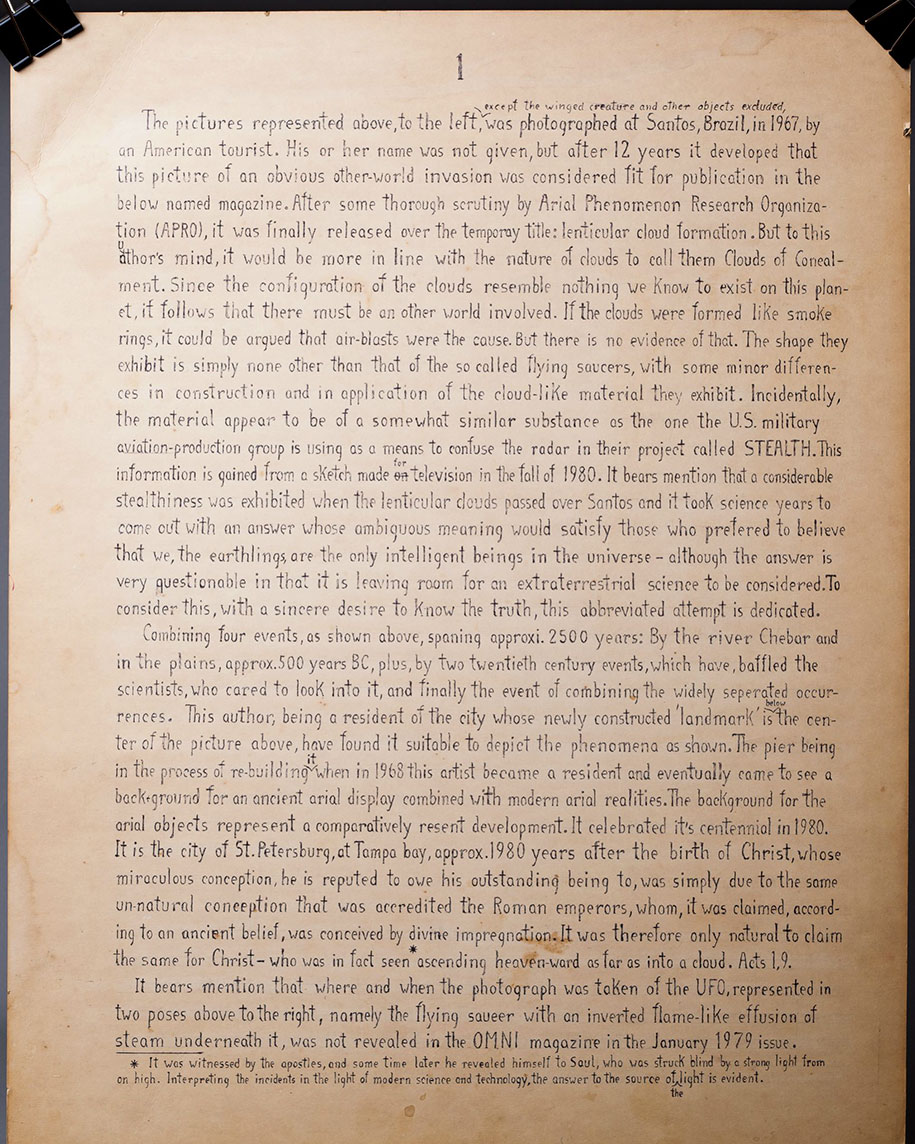 1
except the winged creature and other objects excluded,
The pictures represented above, to the left, was photographed at Santos, Brazil, in 1967, by
an American tourist. His or her name was not given, but after 12 years it developed that
this picture of an obvious other-world invasion was considered fit for publication in the
below named magazine. After some thorough scrutiny by Arial Phenomenon Research Organiza-
tion (APRO), it was finally released over the temporay title: lenticular cloud formation. But to this
u
athor's mind, it would be more in line with the nature of clouds to call them Clouds of Conceal-
ment. Since the configuration of the clouds resemble nothing we Know to exist on this plan-
et, it follows that there must be an other world involved. If the clouds were formed like smoke
rings, it could be argued that air-blasts were the cause. But there is no evidence of that. The shape they
exhibit is simply none other than that of the so called flying saucers, with some minor differen-
ces in construction and in application of the cloud-like material they exhibit. Incidentally,
the material appear to be of a somewhat similar substance as the one the U.S. military
aviation-production group is using as a means to confuse the radar in their project called STEALTH. This
for
information is gained from a sketch made on television in the fall of 1980. It bears mention that a considerable
stealthiness was exhibited when the lenticular clouds passed over Santos and it took science years to
come out with an answer whose ambiguous meaning would satisfy those who prefered to believe
that we, the earthlings, are the only intelligent beings in the universe – although the answer is
very questionable in that it is leaving room for an extraterrestrial science to be considered. To
consider this, with a sincere desire to Know the truth, this abbreviated attempt is dedicated.
Combining four events, as shown above, spaning approxi. 2500 years: By the river Chebar and
in the plains, approx. 500 years BC, plus, by two twentieth century events, which have, baffled the
scientists, who cared to look into it, and finally the event of combining the widely seperated occur-
below
rences. This author, being a resident of the city whose newly constructed 'landmark' is the cen-
ter of the picture above, have found it suitable to depict the phenomena as shown. The pier being
it
in the process of re-building when in 1968 this artist became a resident and eventually came to see a
back-ground for an ancient arial display combined with modern arial realities. The background for the
arial objects represent a comparatively resent development. It celebrated it's centennial in 1980.
It is the city of St. Petersburg, at Tampa bay, approx. 1980 years after the birth of Christ, whose
miraculous conception, he is reputed to owe his outstanding being to, was simply due to the same
un-natural conception that was accredited the Roman emperors, whom, it was claimed, accord-
ing to an ancient belief, was conceived by divine impregnation. It was therefore only natural to claim
the same for Christ – who was in fact seen * ascending heaven-ward as far as into a cloud. Acts 1,9.
It bears mention that where and when the photograph was taken of the UFO, represented in
two poses above to the right, namely the flying saucer with an inverted flame-like effusion of
steam underneath it, was not revealed in the OMNI magazine in the January 1979 issue.
* It was witnessed by the apostles, and some time later he revealed himself to Saul, who was struck blind by a strong light from
on high. Interpreting the incidents in the light of modern science and technology, the answer to the source of light is evident.
the